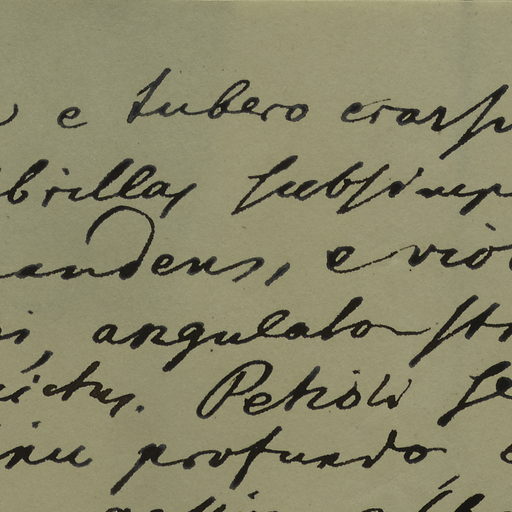 e tubero crassu
ibrillas subsimp
andens, e viol
is, angulato str
ictus. Petioli se
inu profundo,